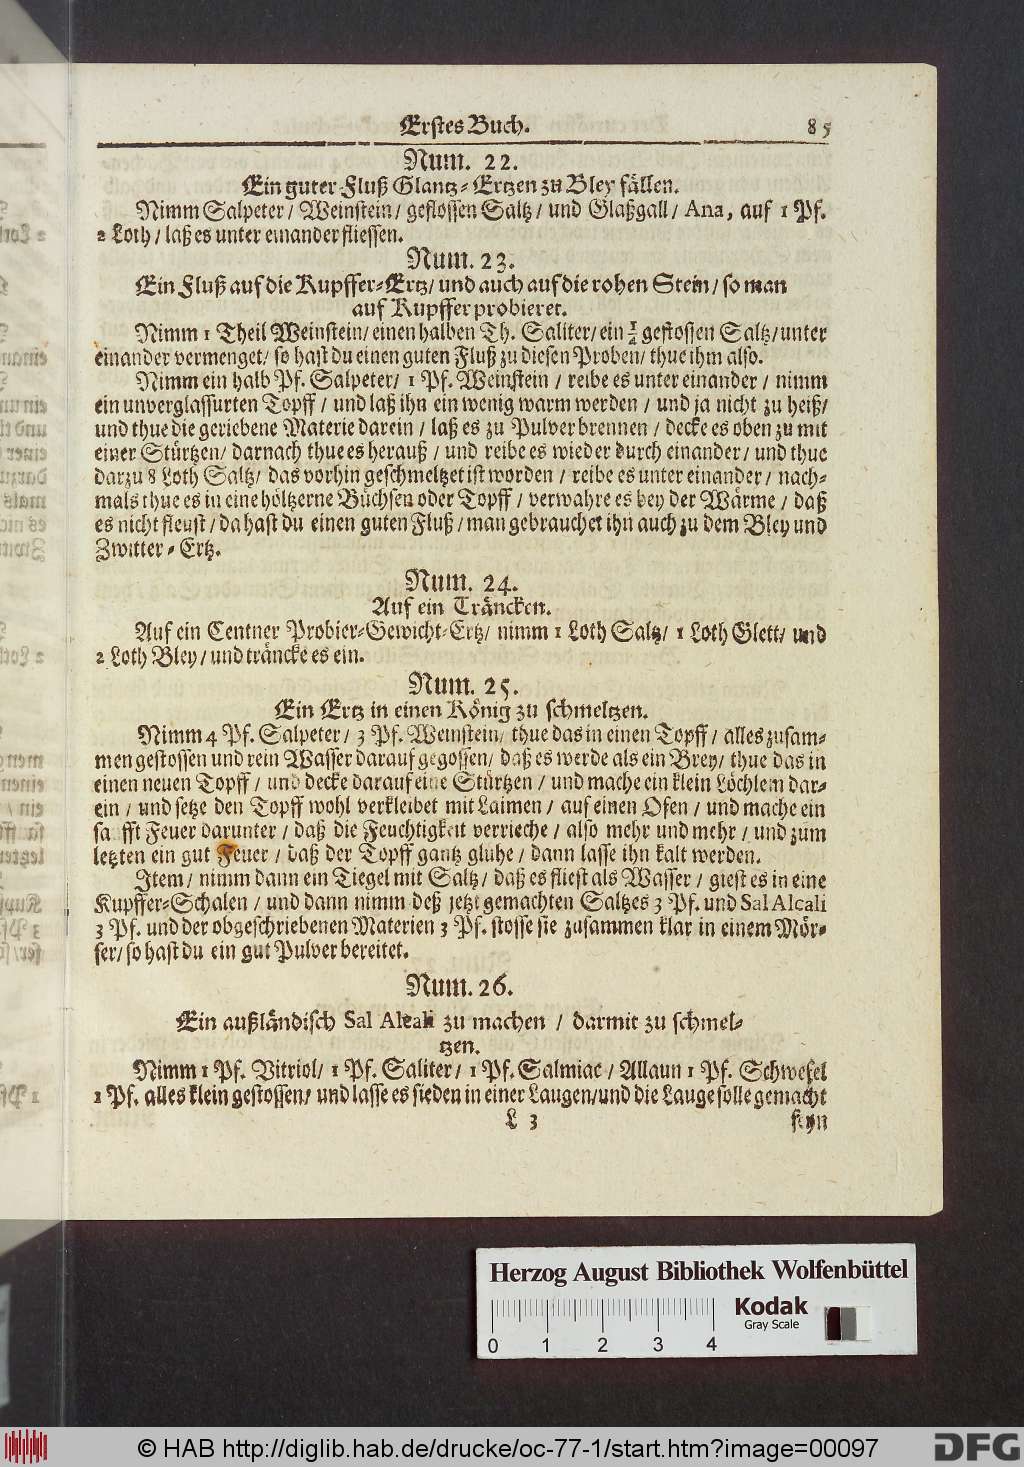 Erstes Buch. 85
Num. 22.
Ein guter Fluß Glantz-Ertzen zu Bley fällen.
Nimm Salpeter / Weinstein / geflossen Saltz / und Glaßgall / Ana, auf 1 Pf.
2 Loth / laß es unter einander fliessen.
Num. 23.
Ein Fluß auf die Kupffer-Ertz / und auch auf die rohen Stein / so man
auf Kupffer probieret.
Nimm 1 Theil Weinstein / einen halben Th. Saliter / ein ½ gestossen Saltz / unter
einander vermenget / so hast du einen guten Fluß zu diesen Proben / thue ihm also.
Nimm ein halb Pf. Salpeter / 1 Pf. Weinstein / reibe es unter einander / nimm
ein unverglassurten Topff / und laß ihn ein wenig warm werden / und ja nicht zu heiß /
und thue die geriebene Materie darein / laß es zu Pulver brennen / decke es oben zu mit
einer Stürtzen / darnach thue es herauß / und reibe es wieder durch einander / und thue
darzu 8 Loth Saltz / das vorhin geschmeltzet ist worden / reibe es unter einander / nach-
mals thue es in eine höltzerne Büchsen oder Topff / verwahre es bey der Wärme / daß
es nicht fleust / da hast du einen guten Fluß / man gebrauchet ihn auch zu dem Bley und
Zwitter-Ertz.
Num. 24.
Auf ein Träncken.
Auf ein Centner Probier-Gewicht-Ertz / nimm 1 Loth Saltz / 1 Loth Glett / und
2 Loth Bley / und träncke es ein.
Num. 25.
Ein Ertz in einen König zu schmeltzen.
Nimm 4 Pf. Salpeter / 3 Pf. Weinstein / thue das in einen Topff / alles zusam-
men gestossen und rein Wasser darauf gegossen / daß es werde als ein Brey / thue das in
einen neuen Topff / und decke darauf eine Stürtzen / und mache ein klein Löchlein dar-
ein / und setze den Topff wohl verkleibet mit Laimen / auf einen Ofen / und mache ein
sa fft Feuer darunter / daß die Feuchtigkeit verrieche / also mehr und mehr / und zum
letzten ein gut Feuer / daß der Topff gantz glühe / dann lasse ihn kalt werden.
Item / nimm dann ein Tiegel mit Saltz / daß es fliest als Wasser / giest es in eine
Kupffer-Schalen / und dann nimm deß jetzt gemachten Saltzes 3 Pf. und Sal Alcali
3 Pf. und der obgeschriebenen Materien 3 Pf. stosse sie zusammen klar in einem Mör-
ser / so hast du ein gut Pulver bereitet.
Num. 26.
Ein außländisch Sal Alcali zu machen / darmit zu schmel-
tzen.
Nimm 1 Pf. Vitriol / 1 Pf. Saliter / 1 Pf. Salmiac / Allaun 1 Pf. Schwefel
1 Pf. alles klein gestossen / und lasse es sieden in einer Laugen / und die Lauge solle gemacht
L 3 seyn
Herzog August Bibliothek Wolfenbüttel
Kodak
Gray Scale
0 1 2 3 4
© HAB http://diglib.hab.de/drucke/oc-77-1/start.htm?image=00097
DFG